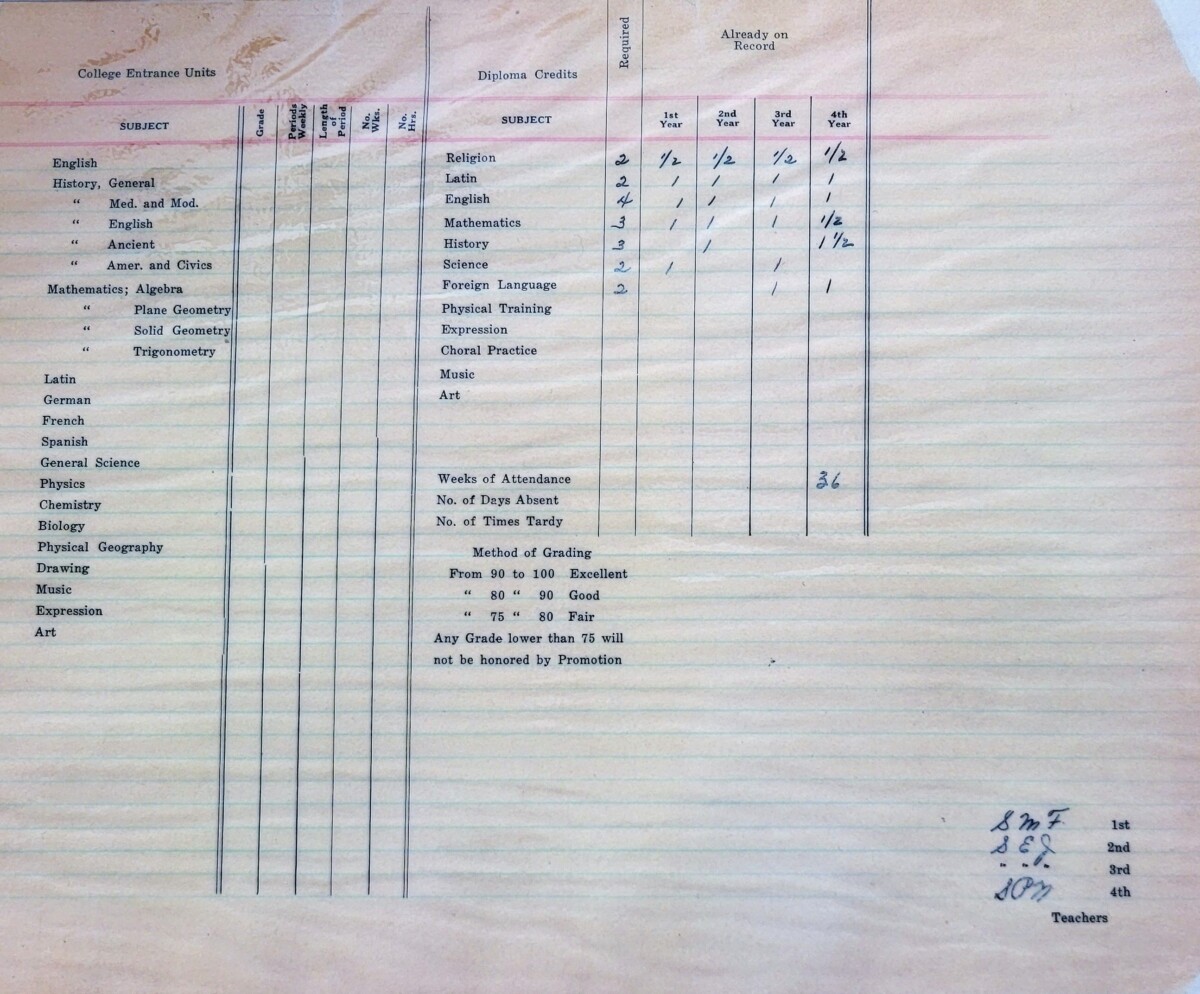 College Entrance Units
SUBJECT Grade Periods Weekly Length of Period No. Wks. No. Hrs.
English
History, General
“ Med. and Mod.
“ English
“ Ancient
“ Amer. and Civics
Mathematics; Algebra
“ Plane Geometry
“ Solid Geometry
“ Trigonometry
Latin
German
French
Spanish
General Science
Physics
Chemistry
Biology
Physical Geography
Drawing
Music
Expression
Art
Diploma Credits Required Already on Record
SUBJECT 1st Year 2nd Year 3rd Year 4th Year
Religion 2 1/2 1/2 1/2 1/2
Latin 2 1 1 1 1
English 4 1 1 1 1
Mathematics 3 1 1 1 1/2
History 3 1 1 1/2
Science 2 1 1
Foreign Language 2 1 1
Physical Training
Expression
Choral Practice
Music
Art
Weeks of Attendance 36
No. of Days Absent
No. of Times Tardy
Method of Grading
From 90 to 100 Excellent
“ 80 “ 90 Good
“ 75 “ 80 Fair
Any Grade lower than 75 will
not be honored by Promotion
SMF 1st
SEJ 2nd
" " " 3rd
SPN 4th
Teachers